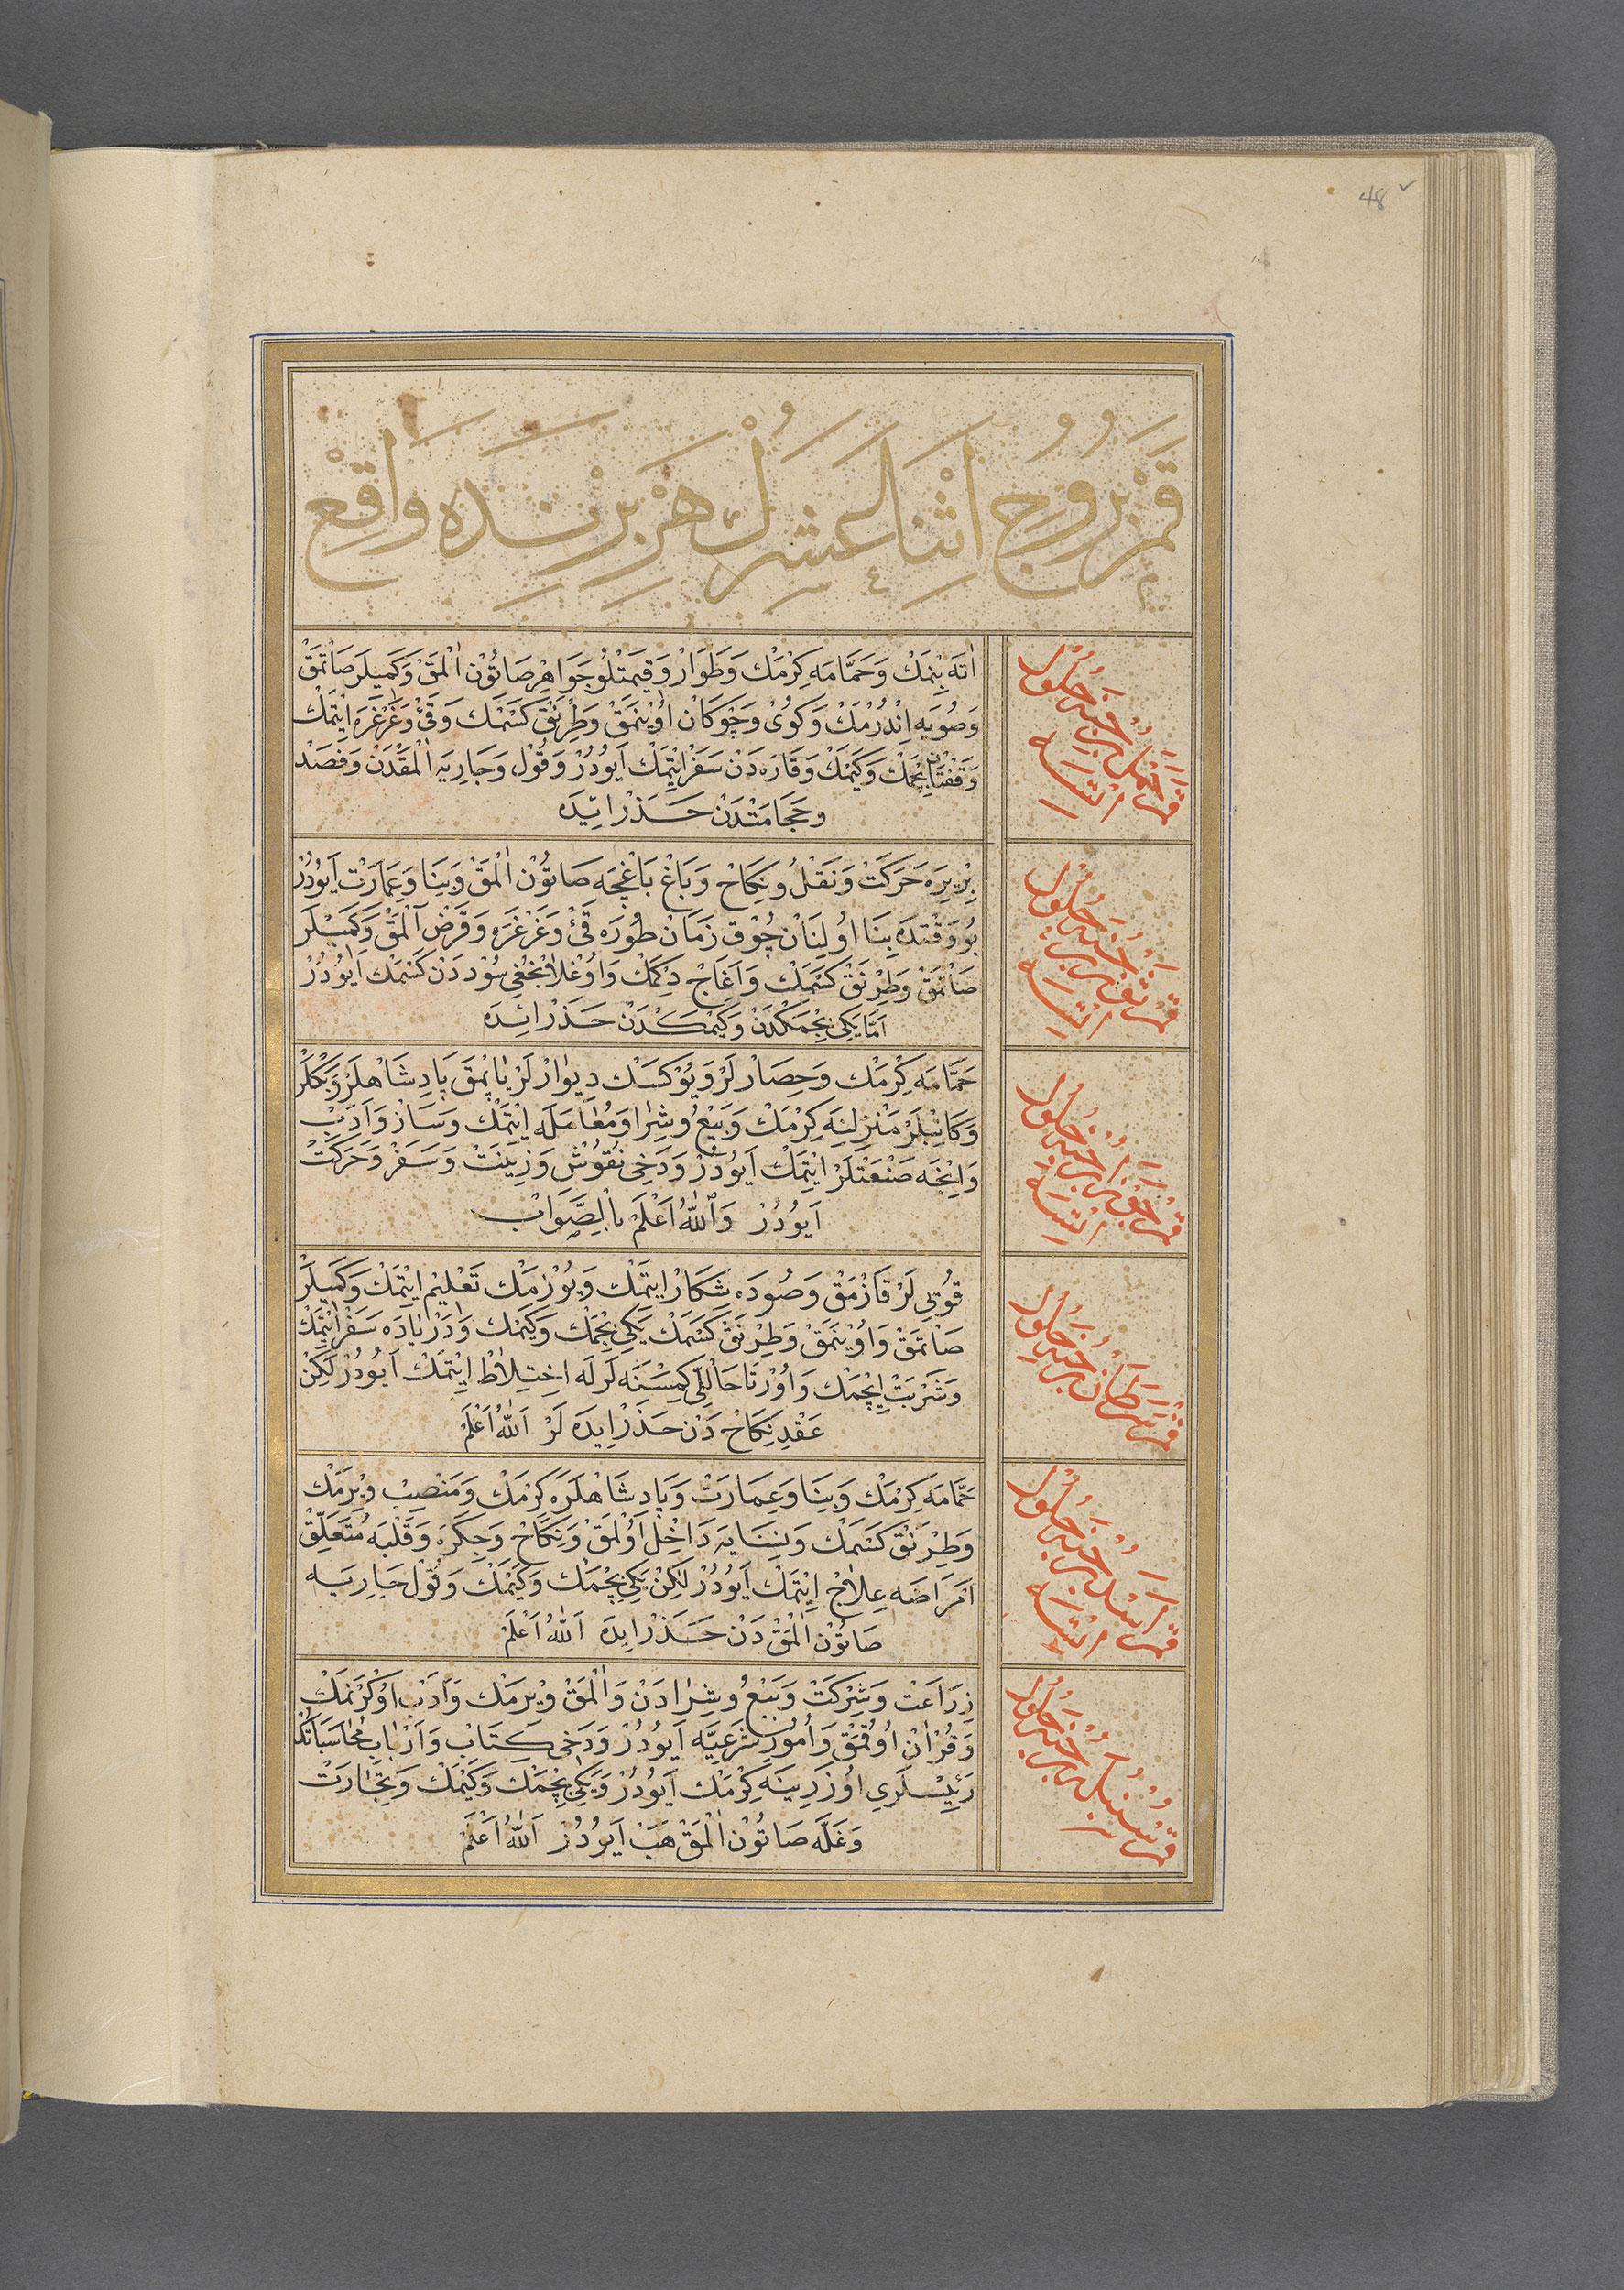 48
قَمَرْ بُرُوجِ اِثْنَا عَشَرِكْ هَرْ بِرِنْدَه وَاقِعْ
قَمَرْ حَمَلْ بُرْجِنَه حُلُولْ
اِتْسَه
اٰتَه بِنْمَكْ وَحَمَّامَه كِرْمَكْ وَطَوَارْ وَقِيمَتْلُو جَوَاهِرْ صَاتُونْ اٰلْمَقْ وَكَمِيلَرْ صَاتْمَقْ
وَصُويَه اِنْدُرْمَكْ وَكُوىْ وَچَوكَانْ اوُيْنَمَقْ وَطِرْنَقْ كَسْمَكْ وَقَىْ وَغَرْغَرَه اِيْتْمَكْ
وَقَفْتَانْ بِچْمَكْ وَكَيْمَكْ وَقَارَه دَنْ سَفَرْ اِيْتْمَكْ اَيُودُرْ وَقُولْ وَجَارِيَه اٰلْمَقْدَنْ وَفَصَدْ
وَحَجَامَتْدَنْ حَذَرْ اِيدَه
قَمَرْ ثَوْرْ بُرْجِنَه حُلُولْ
اِتْسَه
بِرْ يِرَه حَرَكَتْ وَنَقْلْ وَنِكَاحْ وَبَاغْ بَاغْچَه صَاتُونْ اٰلْمَقْ وَبِنَا وَعِمَارَتْ اَيُودُرْ
بُو وَقْتَدَه بِنَا اوُلِنَانْ چُوقْ زَمَانْ طُورَه قَىْ وَغَرْغَرَه وَقَرْضْ اٰلْمَقْ وَكَمِيْلَرْ
صَاتْمَقْ وَطِرْنَقْ كَسْمَكْ وَاَغَاجْ دِكْمَكْ وَاوُغْلَانْجُغِى سُوددَنْ كَسْمَكْ اَيُودُرْ
اَمَّا يَكِى بِچْمَكْدَنْ وَكَيْمَكْدَنْ حَذَرْ اِيدَه
اِتْسَه
حَمَّامَه كِرْمَكْ وَحِصَارْلَرْ وَيُوكْسَكْ دِيوَارْلَرْ يَاپْمَقْ پَادِشَاهْلَرْ وَبَكْلَرْ
وَكَاتِبْلَرْ مَنْزِلِنَه كِرْمَكْ وَبَيْعُ وشِرَا وَمُعَامَلَه اِيْتْمَكْ وَسَازْ وَاَدَبْ
وَاِنْجَه صَنْعَتْلَرْ اِيْتْمَكْ اَيُودُرْ وَدَخِى نُقُوشْ وَزِينَتْ وَسَفَرْ وَحَرَكَتْ
اَيُودُرْ وَاللّٰهُ اَعْلَمْ بِالصَّوَابْ
قَمَرْ سَرَطَانْ بُرْجِنَه حُلُولْ
قُويِى لَرْ قَازْمَقْ وَصُودَه شِكَارْ اِيْتْمَكْ وَيُوزْمَكْ تَعْلِيمْ اِيْتْمَكْ وَكَمِيلَرْ
صَاتْمَقْ وَاوُيْنَمَقْ وَطِرْنَقْ كَسْمَكْ يَكِى بِچْمَكْ وَكَيْمَكْ وَدَرْيَادَه سَفَرْ اِيْتْمَكْ
وَشَرْبَتْ اِيچْمَكْ وَاوُرْتَا حَالْلِى كِمْسَنَه لَرْلَه اِخْتِلَاطْ اِيْتْمَكْ اَيُودُرْ لَكِنْ
عَقْدِ نِكَاحْ دَنْ حَذَرْ اِيدَه لَرْ اَللّٰهُ اَعْلَمْ
قَمَرْ اَسَدْ بُرْجِنَه حُلُولْ
اِتْسَه
حَمَّامَه كِرْمَكْ وَبِنَا وَعِمَارَتْ وَپَادِشَاهْلَرَه كِرْمَكْ وَمَنْصِبْ وِيْرْمَكْ
وَطِرْنَقْ كَسْمَكْ وَبِنَايَه دَاخِلْ اوُلْمَقْ وَنِكَاحْ وَجِكَرَه وَقَلْبَه مُتَعَلِّقْ
اَمْرَاضَه عِلَاجْ اِيْتْمَكْ اَيُودُرْ لَكِنْ يَكِى بِچْمَكْ وَكَيْمَكْ وَقُولْ جَارِيَه
صَاتُونْ اٰلْمَقْ دَنْ حَذَرْ اِيدَه اَللّٰهُ اَعْلَمْ
قَمَرْ سُنْبُلَه بُرْجِنَه حُلُولْ
زِرَاعَتْ وَشِرْكَتْ وَبَيْعُ وشِرَادَنْ وَاٰلْمَقْ وِيْرْمَكْ وَاَدَبْ اوُكْرَنْمَكْ
وَقُرْاٰنْ اوُقُمَقْ وَاُمُورِ شَرْعِيَّه اَيُودُرْ وَدَخِى كِتَابْ وَاَرْبَابِ مُحَاسَبَاتِكْ
رَئِيسْلَرِى اوُزَرِينَه كِرْمَكْ اَيُودُرْ وَيَكِى بِچْمَكْ وَكَيْمَكْ وَتِجَارَتْ
وَغَلَّه صَاتُونْ اٰلْمَقْ هَبْ اَيُودُرْ اَللّٰهُ اَعْلَمْ